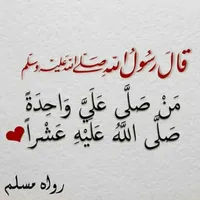 قَالَ رَسُولُ اللهِ صَلَّى اللهُ عَلَيْهِ وَسَلَّم
مَنْ صَلَّى عَلَيَّ وَاحِدَةً
صَلَّى اللَّهُ عَلَيْهِ عَشْراً
رواه مسلم